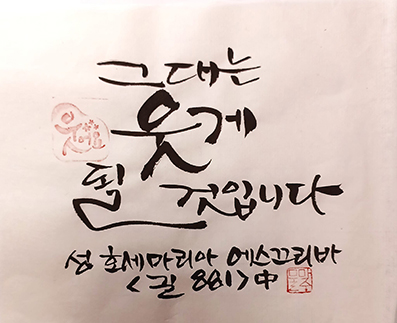 그대는
웃게
될 것입니다
성 호세마리아 에스끄리바
<길 881>中